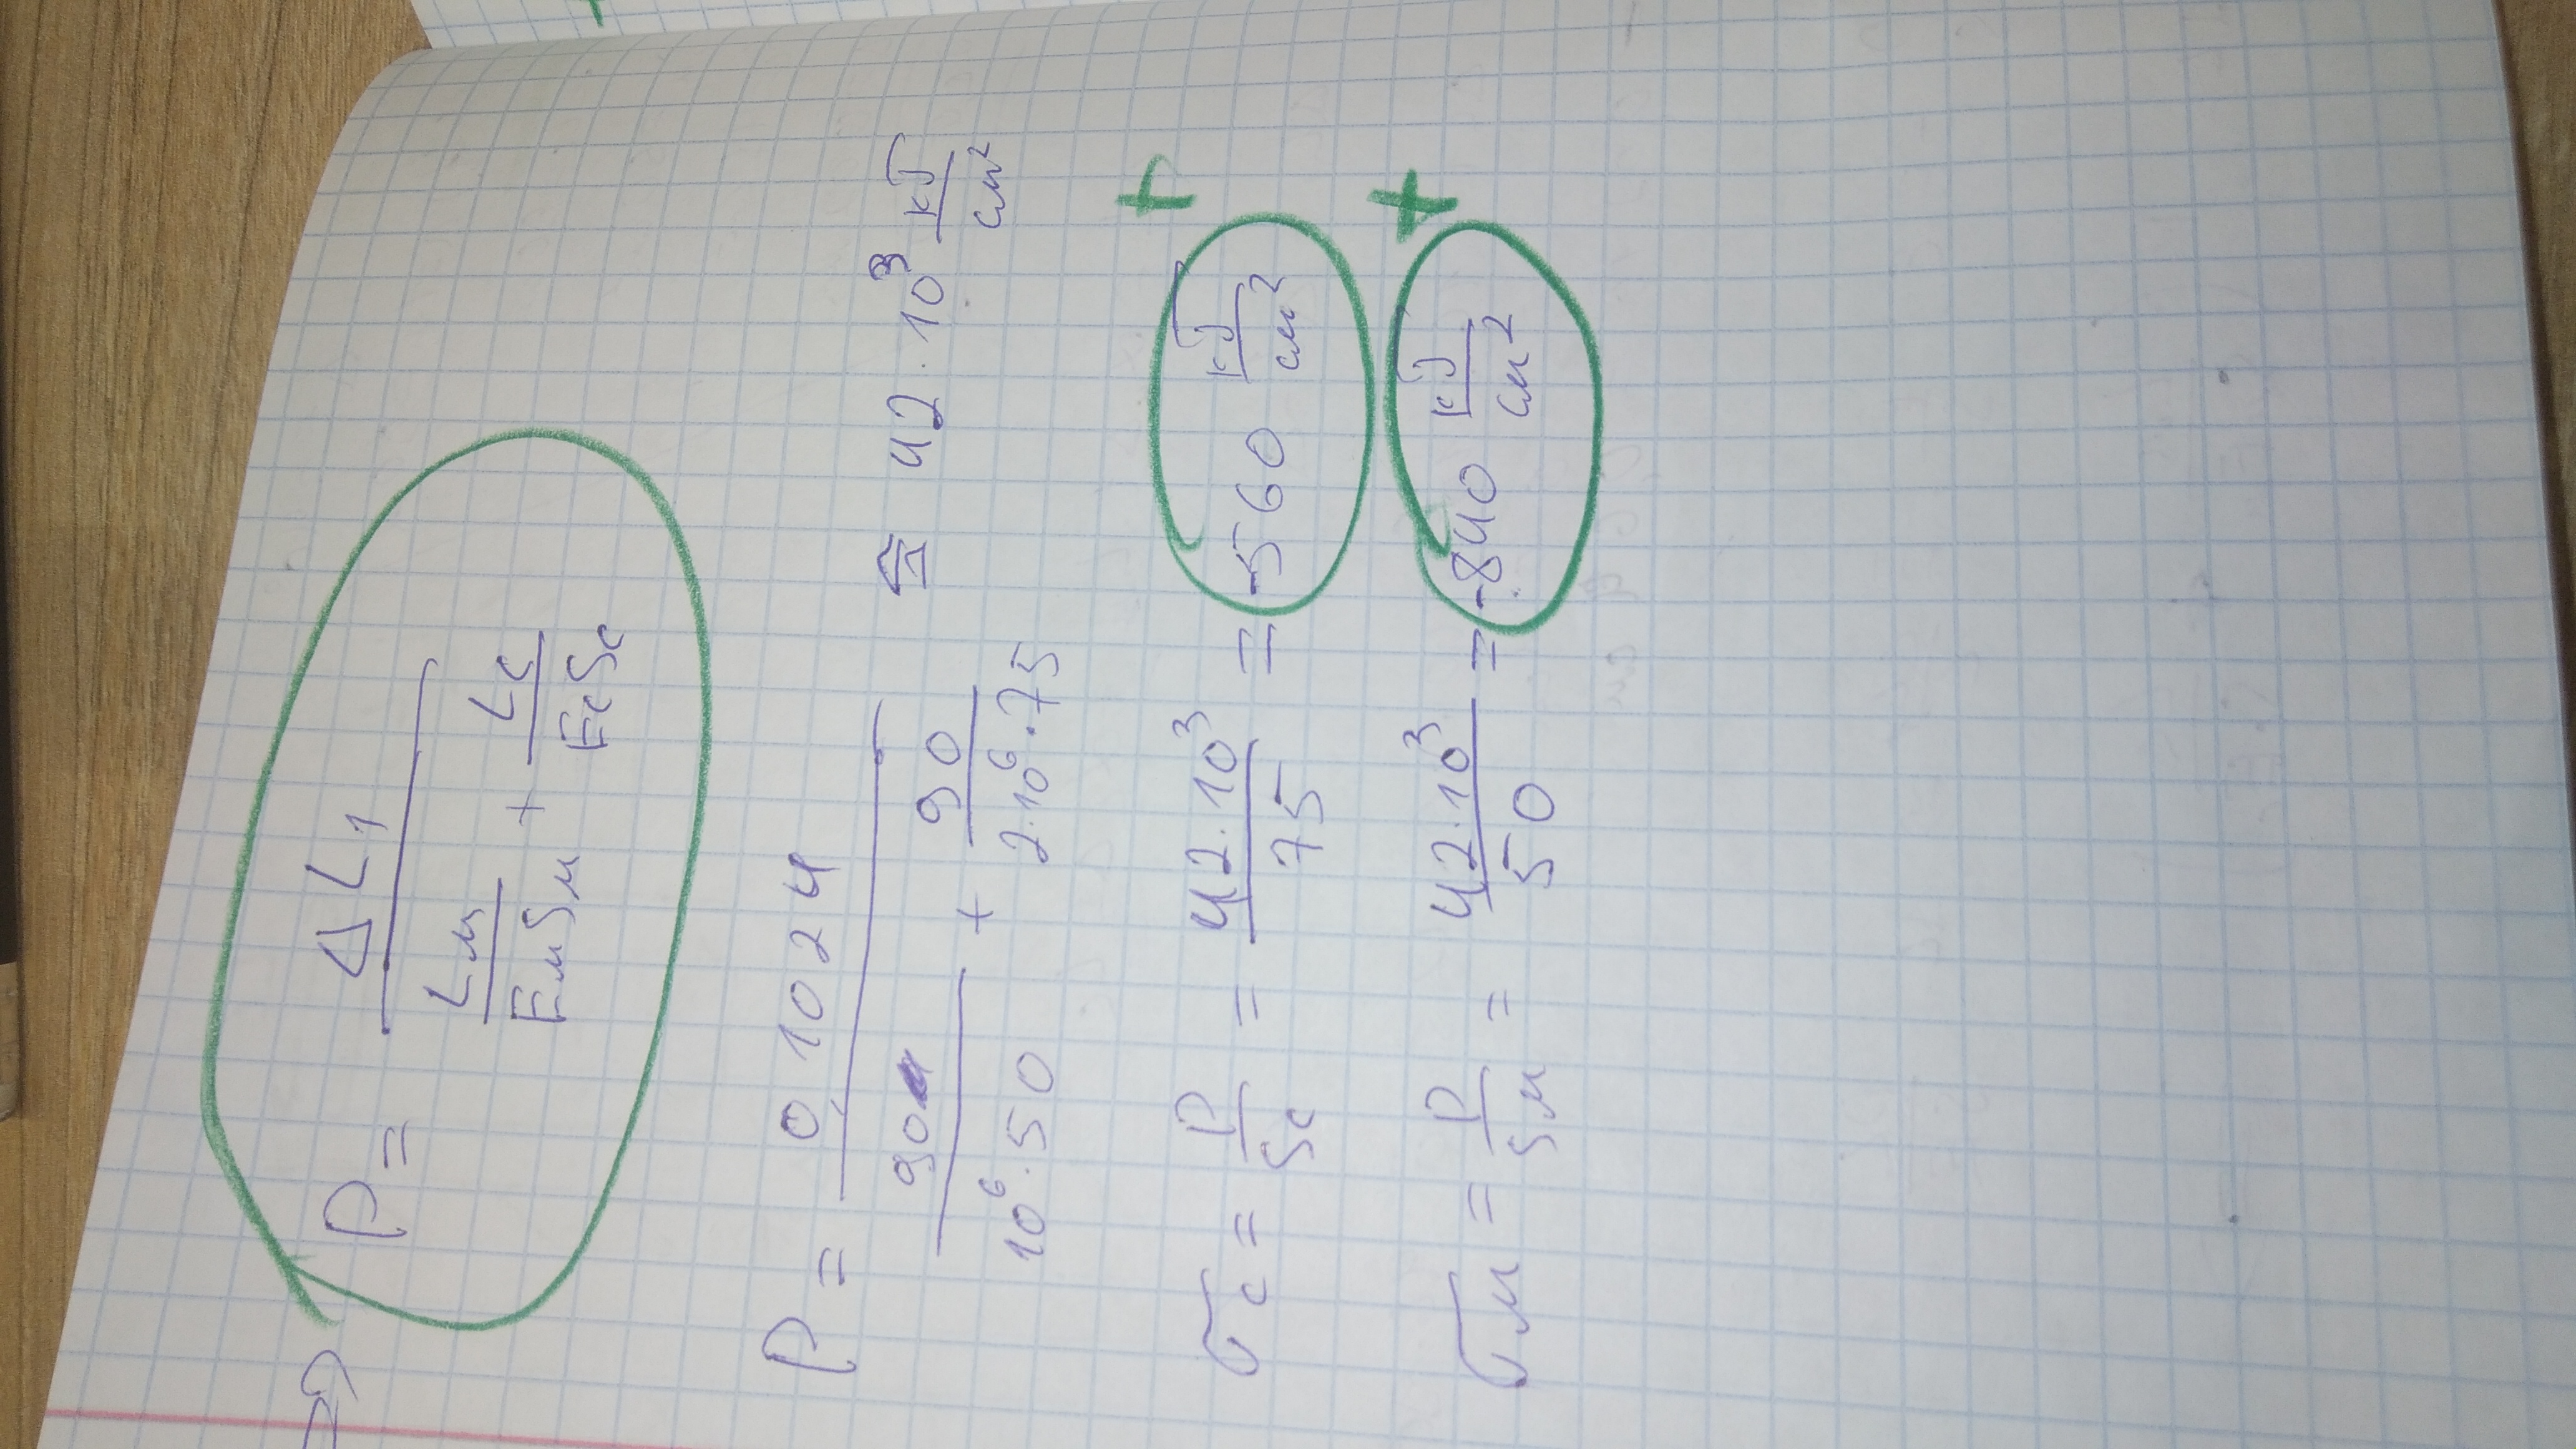 => P = ΔL₁ / (Lм / EмSм + Lc / EcSc)
P = 0,1024 / (90 / 10⁶·50 + 90 / 2·10⁶·75) ≅ 42·10³ кГ/см²
σc = P/Sc = 42·10³ / 75 = -560 кГ/см² +
σм = P/Sм = 42·10³ / 50 = -840 кГ/см² +